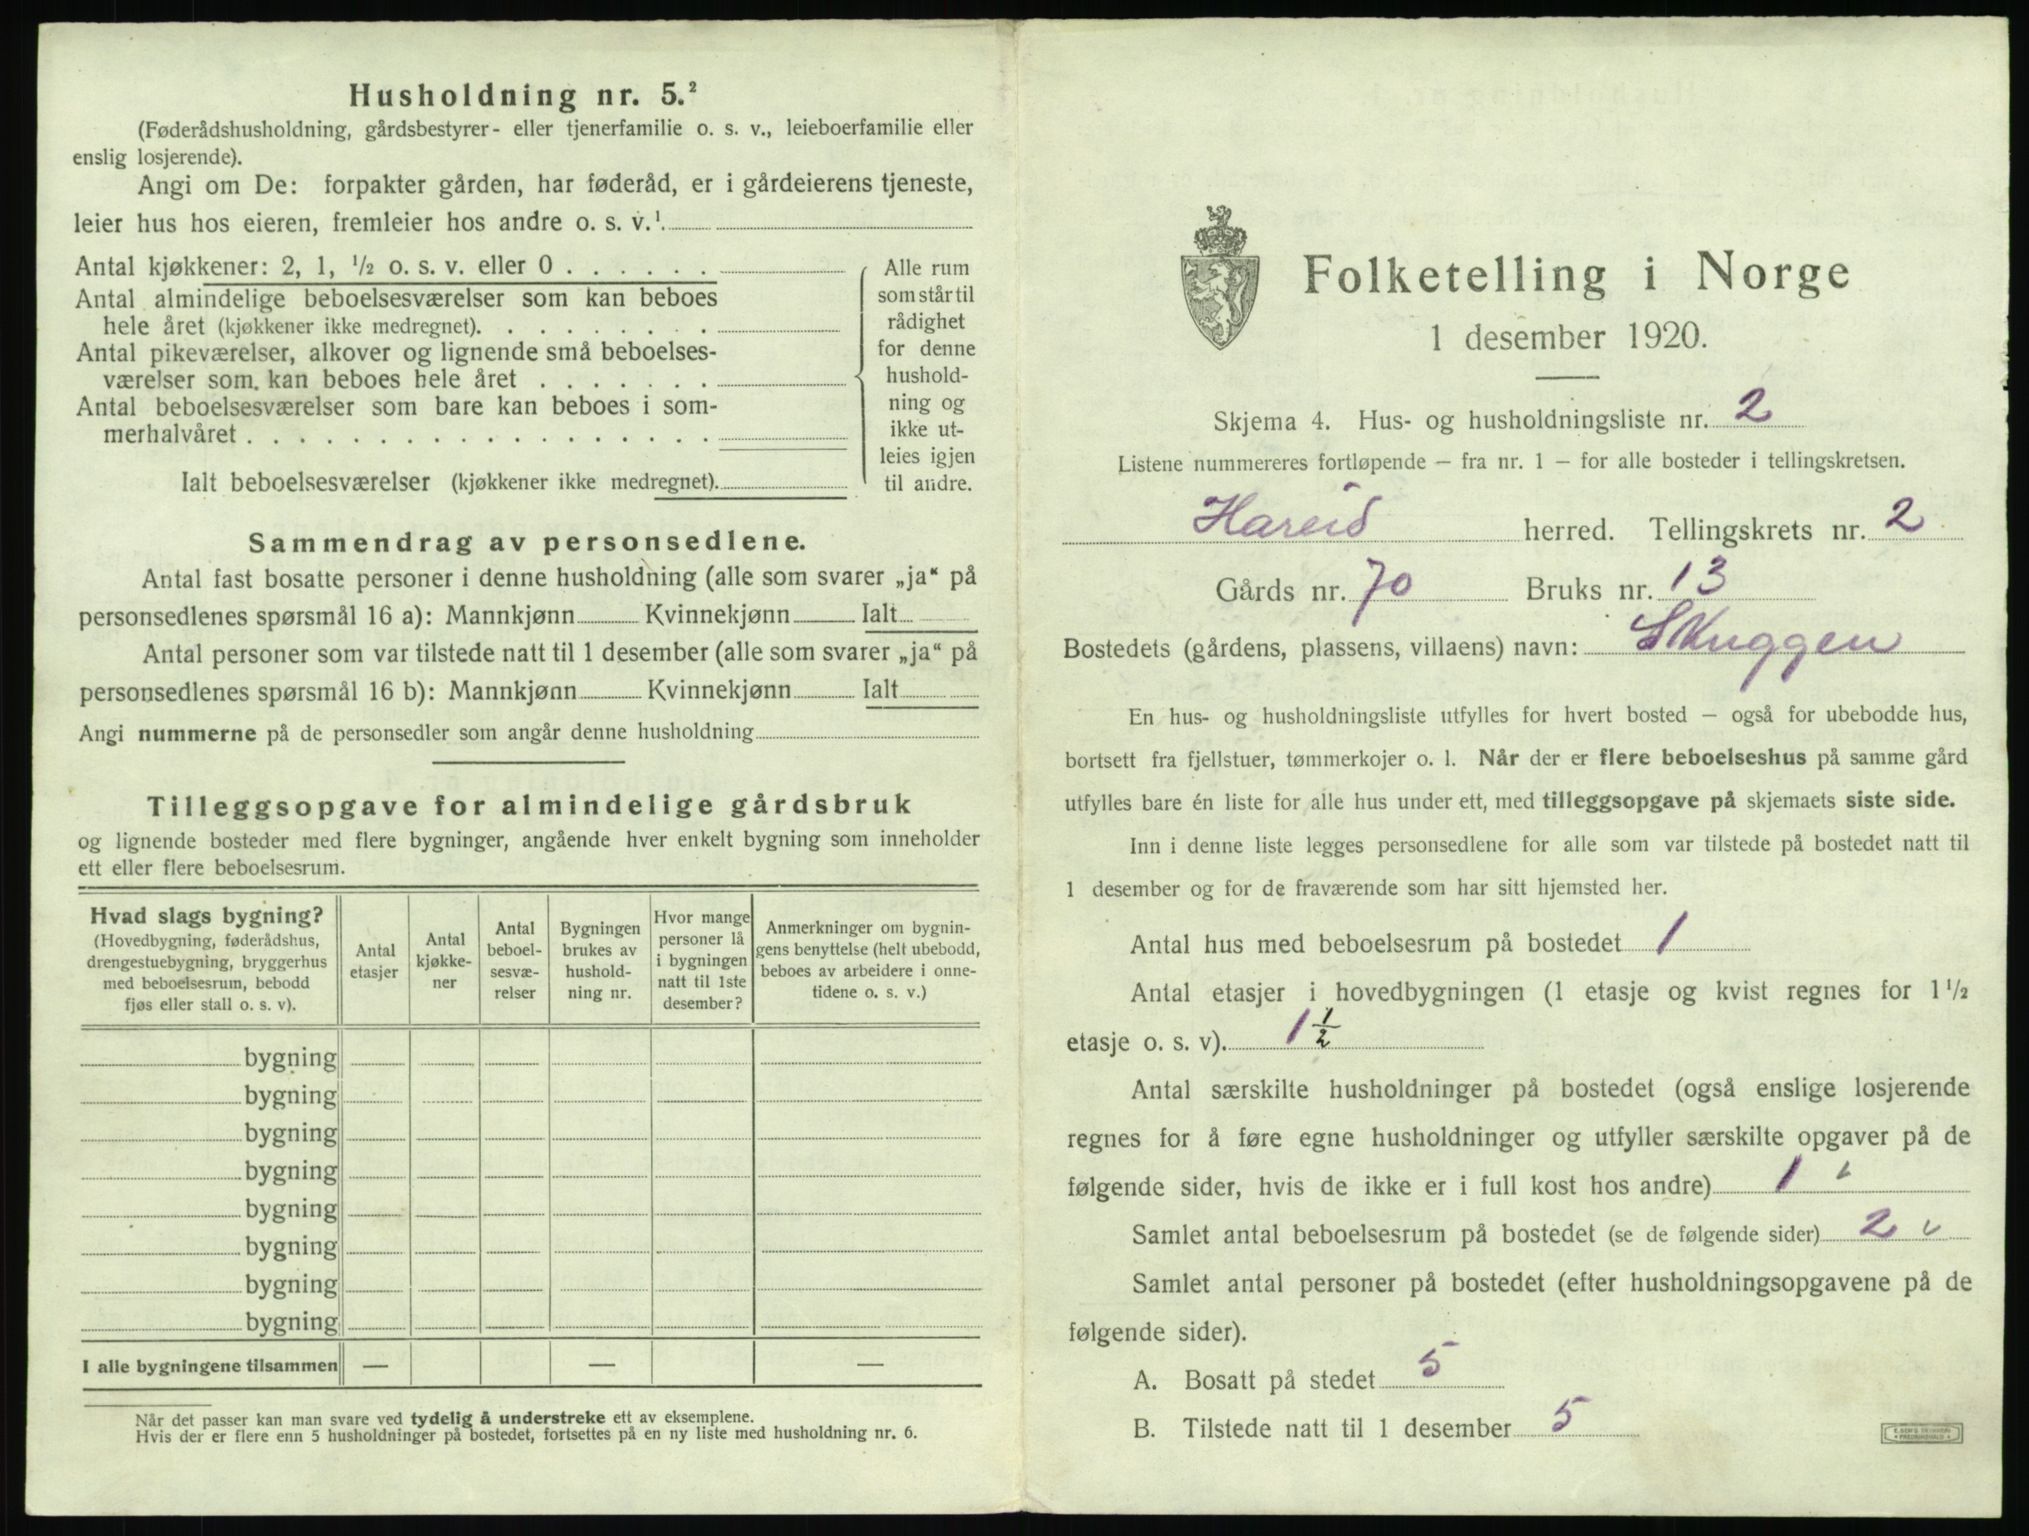 Husholdning nr. 5.²
(Føderådshusholdning, gårdsbestyrer- eller tjenerfamilie o. s. v., leieboerfamilie eller
enslig losjerende).
Angi om De: forpakter gården, har føderåd, er i gårdeierens tjeneste,
leier hus hos eieren, fremleier hos andre o. s. v.¹
Antal kjøkkener: 2, 1, ½ o. s. v. eller 0 . . . . . .
Antal almindelige beboelsesværelser som kan beboes
hele året (kjøkkener ikke medregnet). . . . . . . . .
Antal pikeværelser, alkover og lignende små beboelses-
værelser som kan beboes hele året . . . . . . .
Antal beboelsesværelser som bare kan beboes i som-
merhalvåret . . . . . . . . . . . . . . . . . .
Ialt beboelsesværelser (kjøkkener ikke medregnet).
Alle rum
som står til
rådighet
for denne
hushold-
ning og
ikke ut-
leies igjen
til andre.
Sammendrag av personsedlene.
Antal fast bosatte personer i denne husholdning (alle som svarer „ja“ på
personsedlenes spørsmål 16 a): Mannkjønn Kvinnekjønn Ialt
Antal personer som var tilstede natt til 1 desember (alle som svarer „ja“ på
personsedlenes spørsmål 16 b): Mannkjønn Kvinnekjønn Ialt
Angi nummerne på de personsedler som angår denne husholdning
Tilleggsopgave for almindelige gårdsbruk
og lignende bosteder med flere bygninger, angående hver enkelt bygning som inneholder
ett eller flere beboelsesrum.
Hvad slags bygning?
(Hovedbygning, føderådshus,
drengestuebygning, bryggerhus
med beboelsesrum, bebodd
fjøs eller stall o. s. v).
Antal
etasjer
Antal
kjøkke-
ner
Antal
beboel-
sesvæ-
relser
Bygningen
brukes av
hushold-
ning nr.
Hvor mange
personer lå
i bygningen
natt til 1ste
desember?
Anmerkninger om bygnin-
gens benyttelse (helt ubebodd,
beboes av arbeidere i onne-
tidene o. s. v.)
bygning
bygning
bygning
bygning
bygning
bygning
bygning
bygning
I alle bygningene tilsammen — — —
Når det passer kan man svare ved tydelig å understreke ett av eksemplene.
Hvis der er flere enn 5 husholdninger på bostedet, fortsettes på en ny liste med husholdning nr. 6.
Folketelling i Norge
1 desember 1920.
Skjema 4. Hus- og husholdningsliste nr. 2
Listene nummereres fortløpende — fra nr. 1 — for alle bosteder i tellingskretsen.
Hareid herred. Tellingskrets nr. 2
Gårds nr. 70 Bruks nr. 13
Bostedets (gårdens, plassens, villaens) navn: Skuggen
En hus- og husholdningsliste utfylles for hvert bosted — også for ubebodde hus,
bortsett fra fjellstuer, tømmerkojer o. l. Når der er flere beboelseshus på samme gård
utfylles bare én liste for alle hus under ett, med tilleggsopgave på skjemaets siste side.
Inn i denne liste legges personsedlene for alle som var tilstede på bostedet natt til
1 desember og for de fraværende som har sitt hjemsted her.
Antal hus med beboelsesrum på bostedet 1
Antal etasjer i hovedbygningen (1 etasje og kvist regnes for 1½
etasje o. s. v). 1½
Antal særskilte husholdninger på bostedet (også enslige losjerende
regnes for å føre egne husholdninger og utfyller særskilte opgaver på de
følgende sider, hvis de ikke er i full kost hos andre) 1
Samlet antal beboelsesrum på bostedet (se de følgende sider) 2
Samlet antal personer på bostedet (efter husholdningsopgavene på de
følgende sider).
A. Bosatt på stedet 5
B. Tilstede natt til 1 desember 5